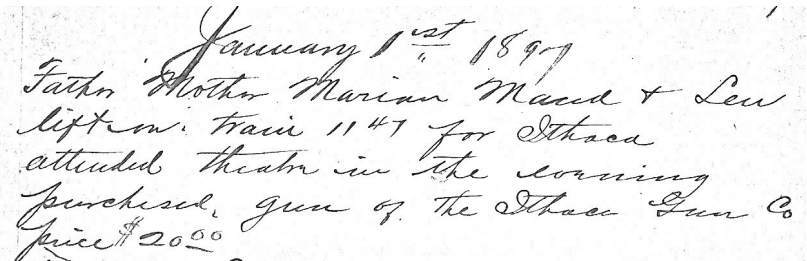 January 1st 1897
Father Mother Marian Maud + Lew
left on train 11 47 for Ithaca
attended theatre in the evening
purchased gun of the Ithaca Gun Co
price $20 00